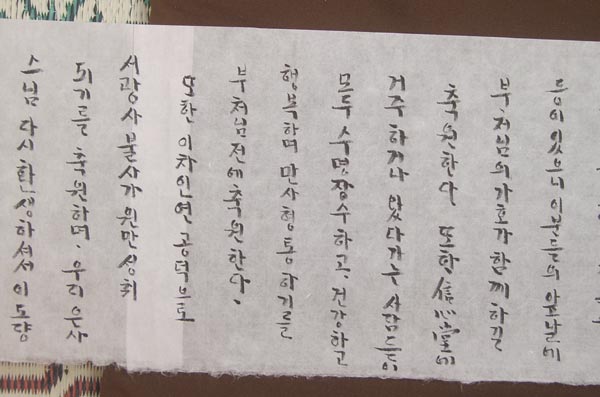 등이 있으니 이분들의 앞날에
부처님의 가호가 함께 하길
축원한다. 또한 信心堂에
거주 하거나 왔다가는 사람들이
모두 수명장수 하고, 건강하고
행복하며 만사형통 하기를
부처님전에 축원한다.
또한 이차인연 공덕으로
서광사 불사가 원만성취
되기를 축원하며, 우리 은사
스님 다시 환생하셔서 이 도량